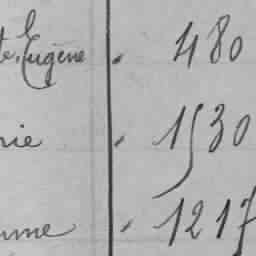 te. Eugène " 480
rie " 1530
mme " 1217